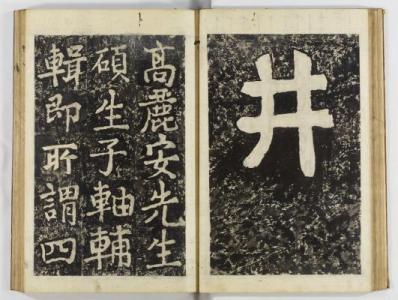 井
高麗安先生
碩生子軸輔
輯即所謂四